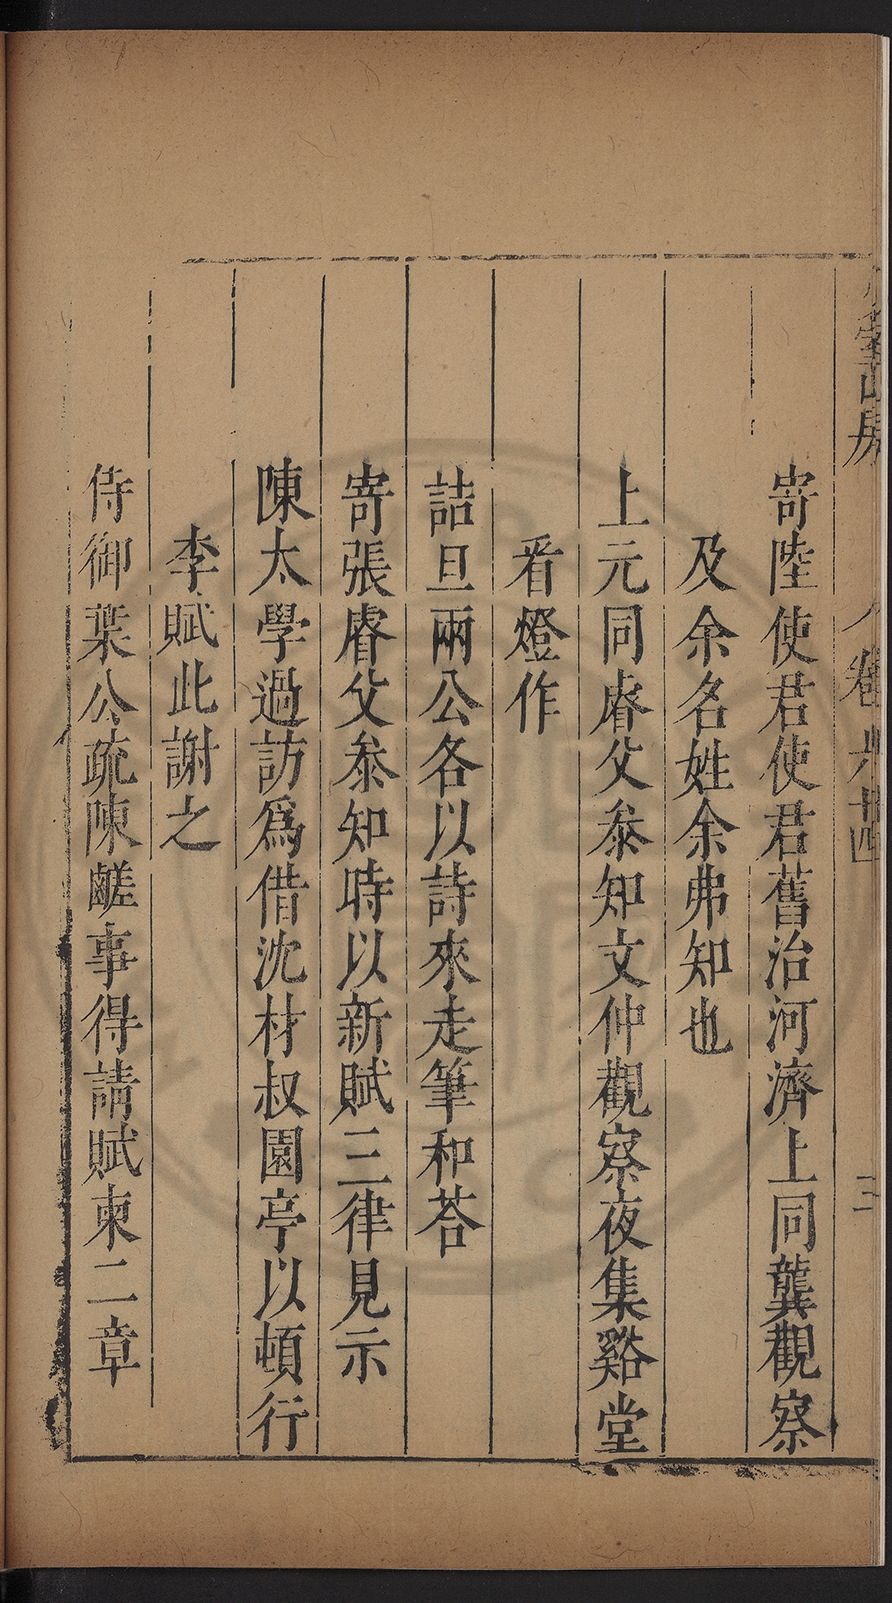 寄陸使君使君舊治河濟上同龔觀察
及余名姓余弗知也
上元同睿父叅知文仲觀察夜集谿堂
看燈作
詰旦兩公各以詩來走筆和荅
寄張睿父叅知時以新賦三律見示
陳太學過訪爲借沈材叔園亭以頓行
李賦此謝之
侍御葉公疏陳鹺事得請賦柬二章